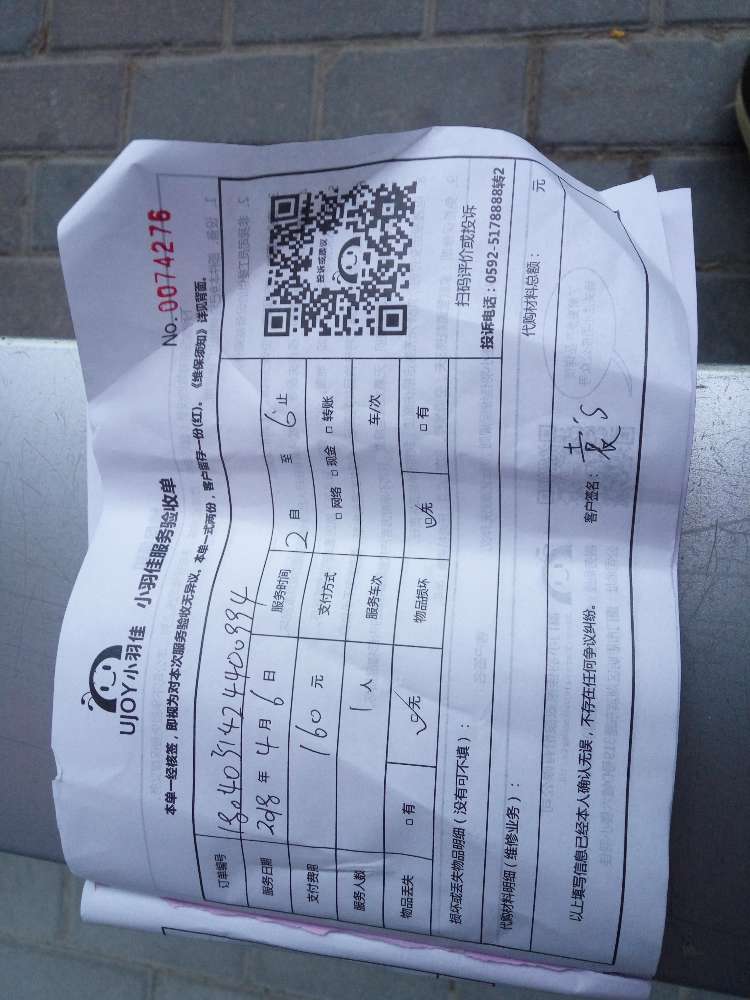 UJOY小羽佳 小羽佳服务验收单
No. 0074276
本单一经核签，即视为对本次服务验收无异议，本单一式两份，客户留存一份(红)。《维保须知》详见背面。
订单编号 1804031424400994
服务日期 2018 年 4 月 6 日 服务时间 2 自 至 6 止
支付费用 160 元 支付方式 □ 网络 □ 现金 □ 转账
服务人数 1 人 服务车次 车/次
物品丢失 □ 有 ☑ 无 物品损坏 ☑ 无 □ 有
投诉或建议
扫码评价或投诉
投诉电话：0592-5178888转2
损坏或丢失物品明细（没有可不填）：
代购材料明细（维修业务）： 代购材料总额： 元
以上填写信息已经本人确认无误，不存在任何争议纠纷。 客户签名： 袁's